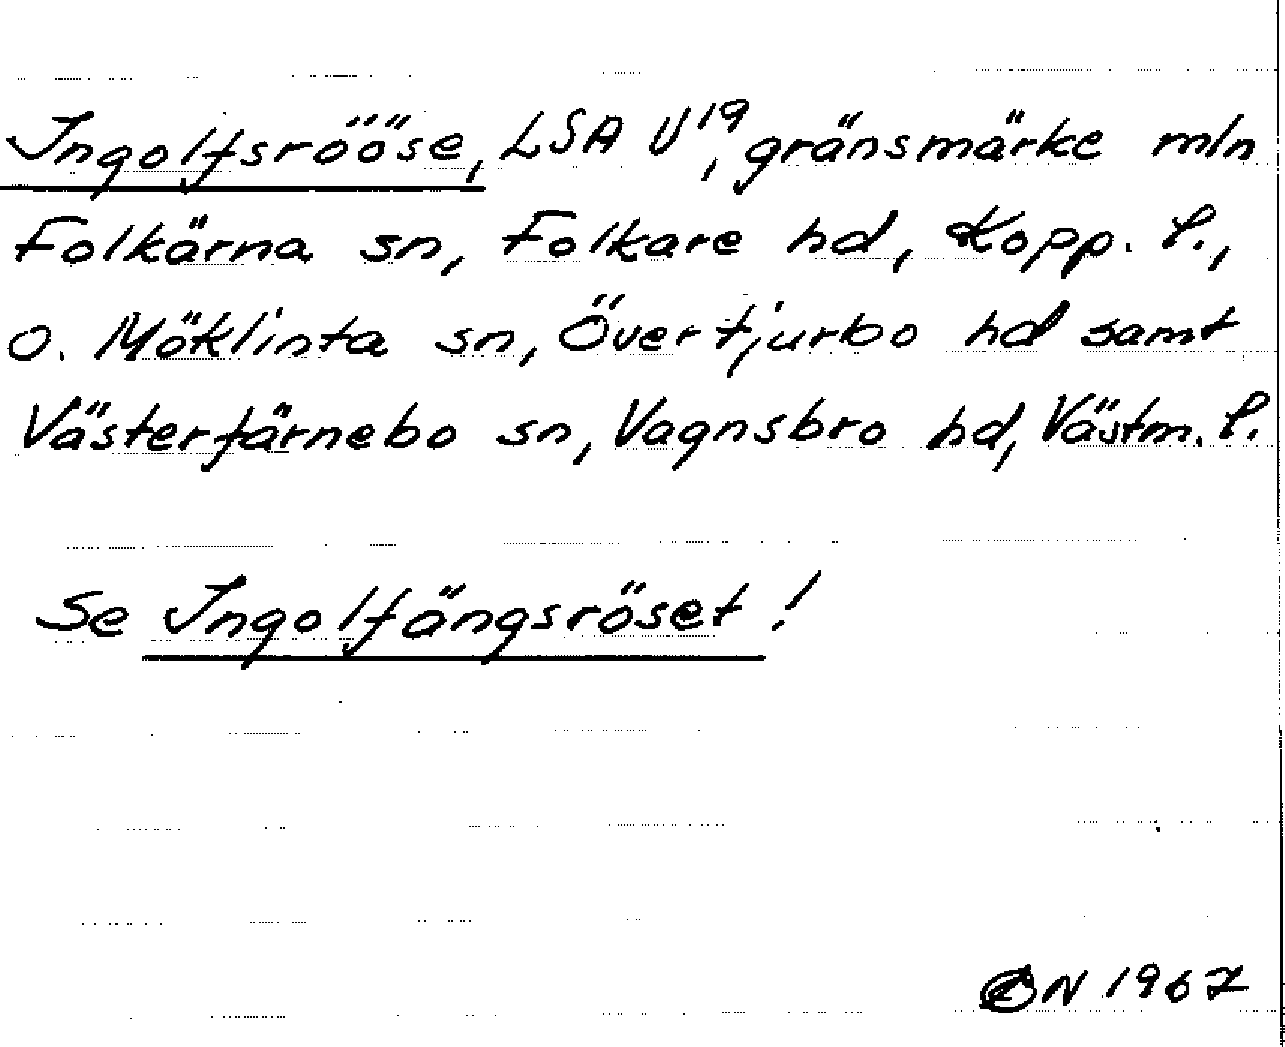 Ingolfsrööse, LSA U19, gränsmärke mln
Folkärna sn, Folkare hd, Kopp. l.,
o. Möklinta sn, Övertjurbo hd samt
Västerfärnebo sn, Vagnsbro hd, Västm. l.
Se Ingolfängsröset!
BN 1967